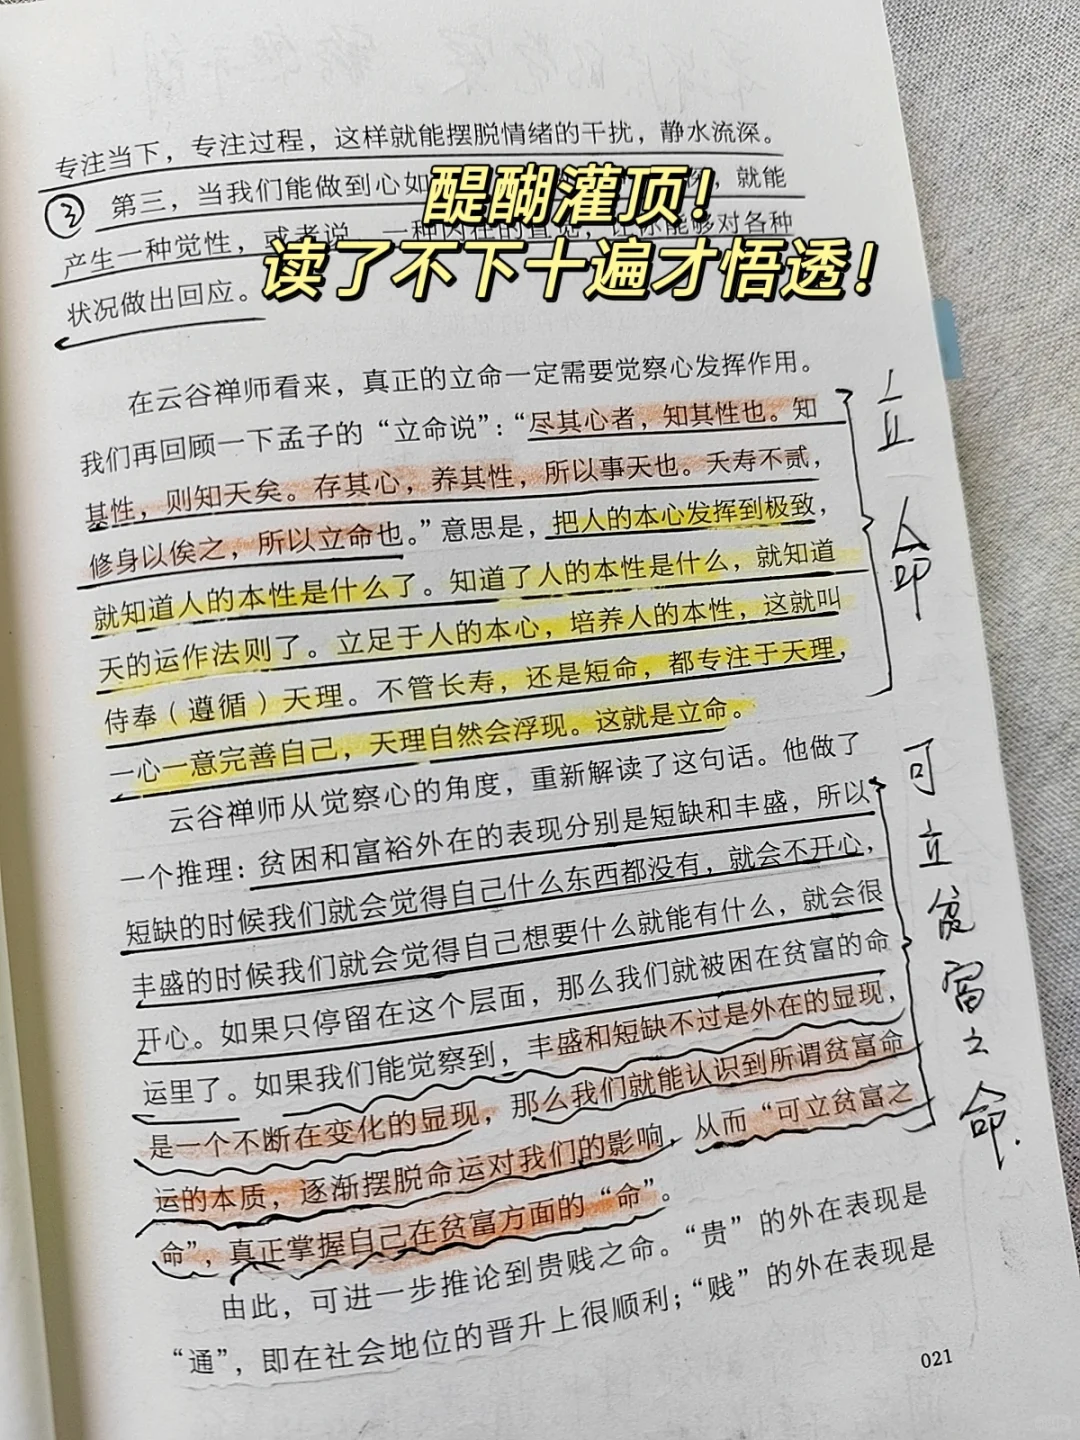 专注当下，专注过程，这样就能摆脱情绪的干扰，静水流深。
③ 第三，当我们能做到心如 ，就能
醍醐灌顶！
产生一种觉性，或者说，一种内在的直觉，让你能够对各种
读了不下十遍才悟透！
状况做出回应。
在云谷禅师看来，真正的立命一定需要觉察心发挥作用。
我们再回顾一下孟子的“立命说”：“尽其心者，知其性也。知
其性，则知天矣。存其心，养其性，所以事天也。夭寿不贰，
修身以俟之，所以立命也。”意思是，把人的本心发挥到极致，
就知道人的本性是什么了。知道了人的本性是什么，就知道
天的运作法则了。立足于人的本心，培养人的本性，这就叫
侍奉（遵循）天理。不管长寿，还是短命，都专注于天理，
一心一意完善自己，天理自然会浮现。这就是立命。
立命
云谷禅师从觉察心的角度，重新解读了这句话。他做了
一个推理：贫困和富裕外在的表现分别是短缺和丰盛，所以
短缺的时候我们就会觉得自己什么东西都没有，就会不开心，
丰盛的时候我们就会觉得自己想要什么就能有什么，就会很
开心。如果只停留在这个层面，那么我们就被困在贫富的命
运里了。如果我们能觉察到，丰盛和短缺不过是外在的显现，
是一个不断在变化的显现，那么我们就能认识到所谓贫富命
运的本质，逐渐摆脱命运对我们的影响，从而“可立贫富之
命”，真正掌握自己在贫富方面的“命”。
可立贫富之命.
由此，可进一步推论到贵贱之命。“贵”的外在表现是
“通”，即在社会地位的晋升上很顺利；“贱”的外在表现是
021